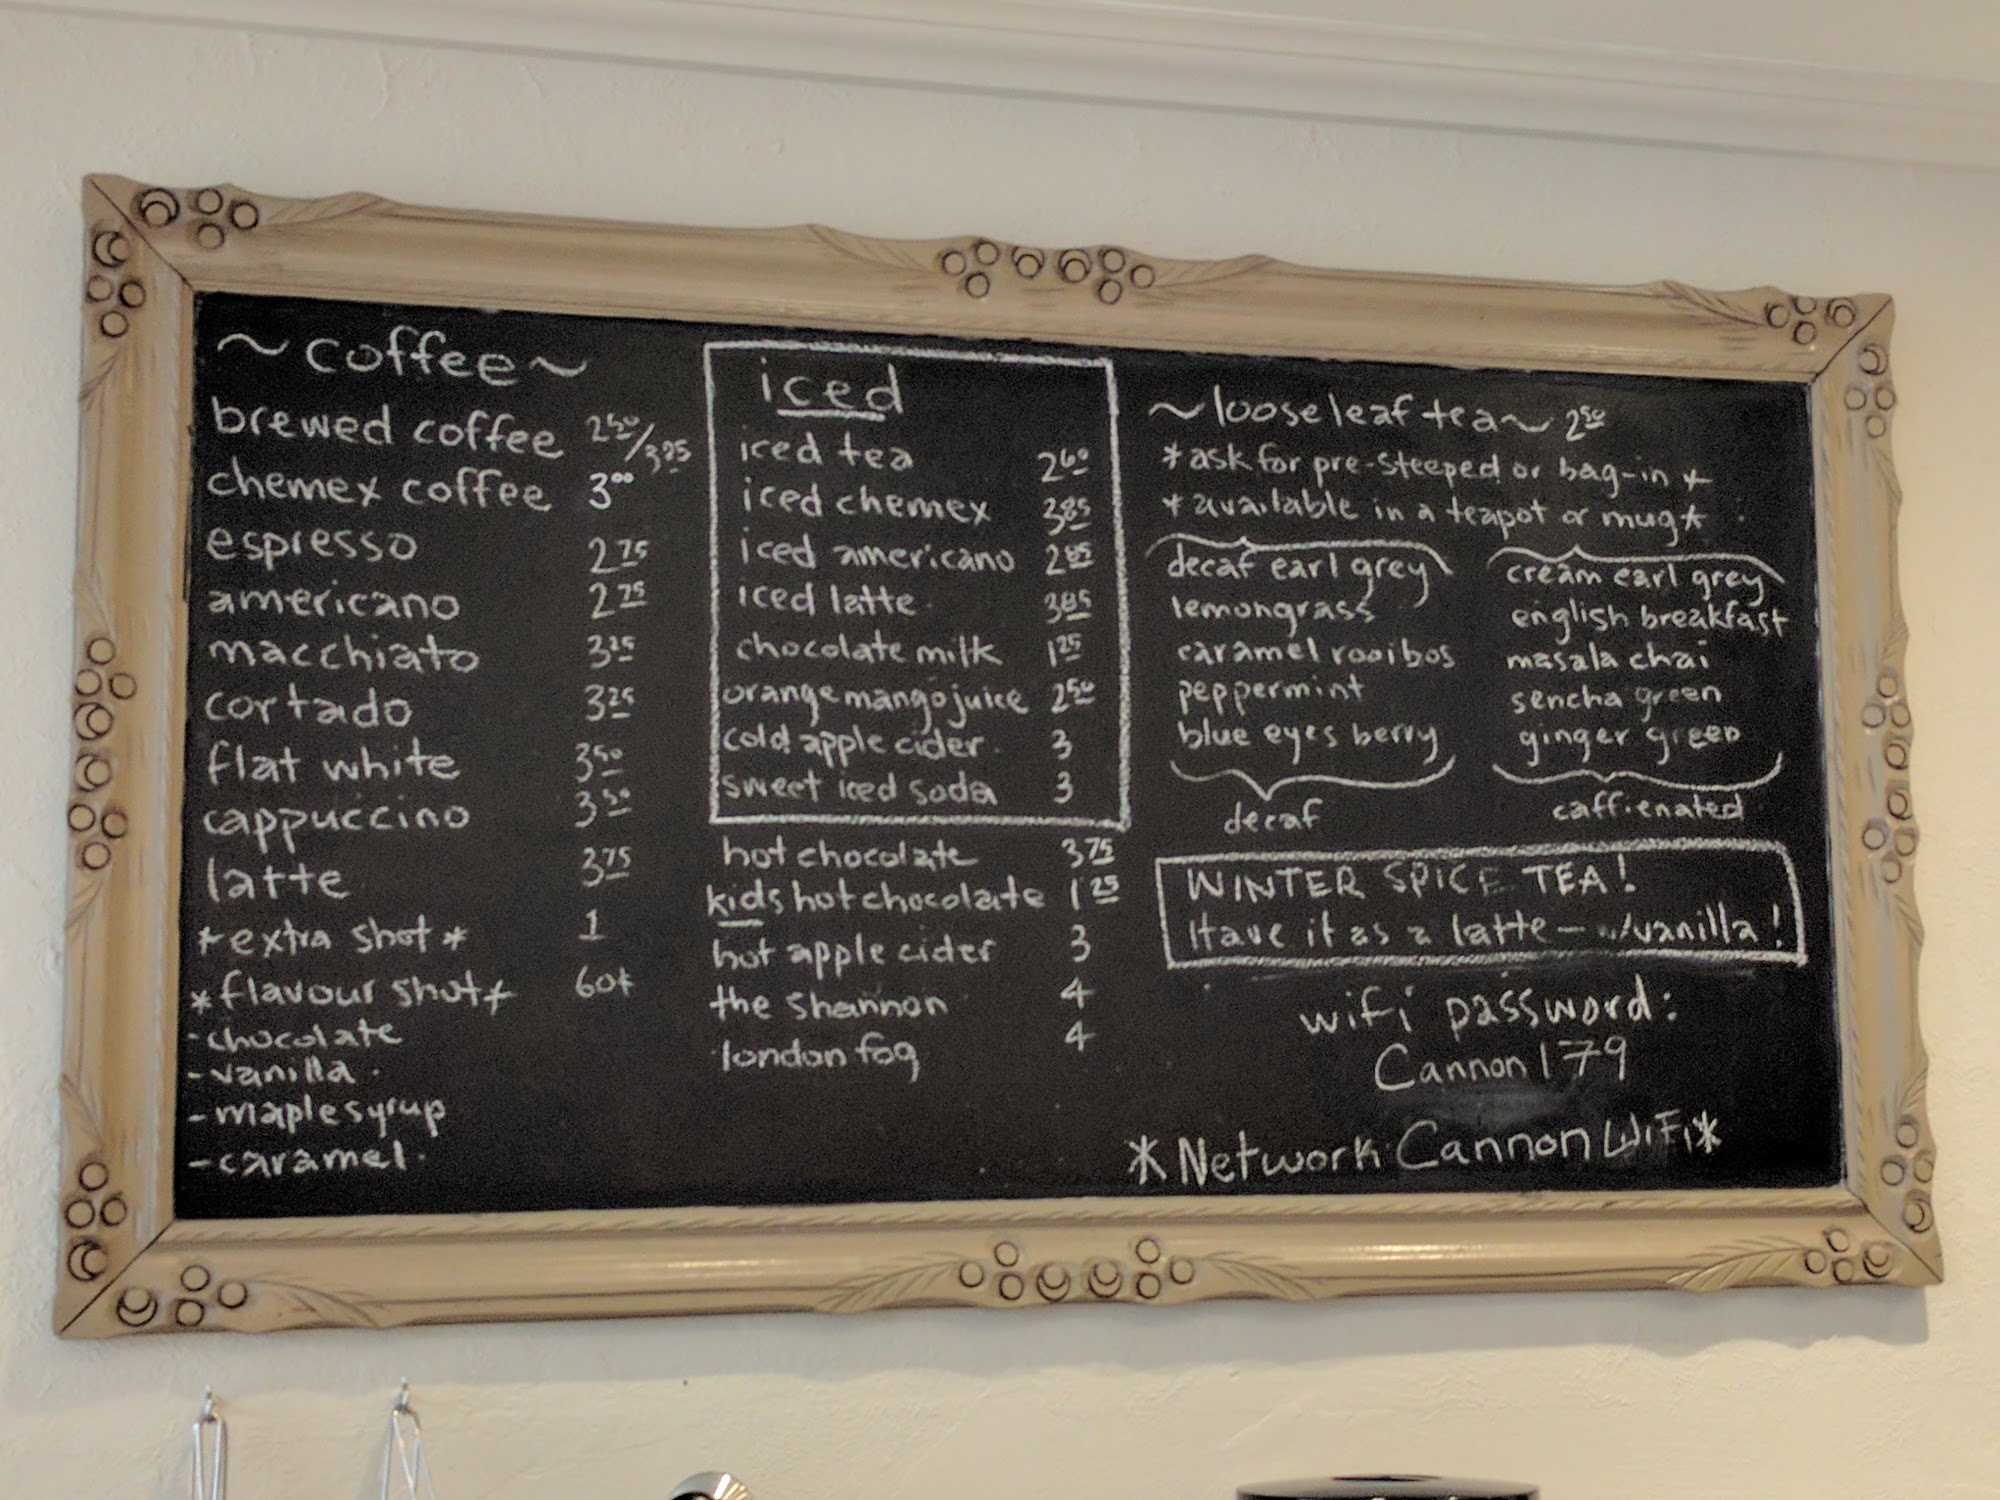 ~coffee~
brewed coffee 250/325
chemex coffee 300
espresso 275
americano 275
macchiato 325
cortado 325
flat white 350
cappuccino 350
latte 375
*extra shot* 1
*flavour shot* 60¢
-chocolate
-vanilla
-maple syrup
-caramel
iced
iced tea 260
iced chemex 385
iced americano 285
iced latte 385
chocolate milk 125
orange mango juice 250
cold apple cider 3
sweet iced soda 3
hot chocolate 375
kids hot chocolate 125
hot apple cider 3
the shannon 4
london fog 4
~loose leaf tea~ 250
*ask for pre-steeped or bag-in*
*available in a teapot or mug*
decaf earl grey
lemongrass
caramel rooibos
peppermint
blue eyes berry
decaf
cream earl grey
english breakfast
masala chai
sencha green
ginger green
caffienated
WINTER SPICE TEA!
Have it as a latte - w/vanilla!
wifi password:
Cannon179
*Network: Cannon WiFi*